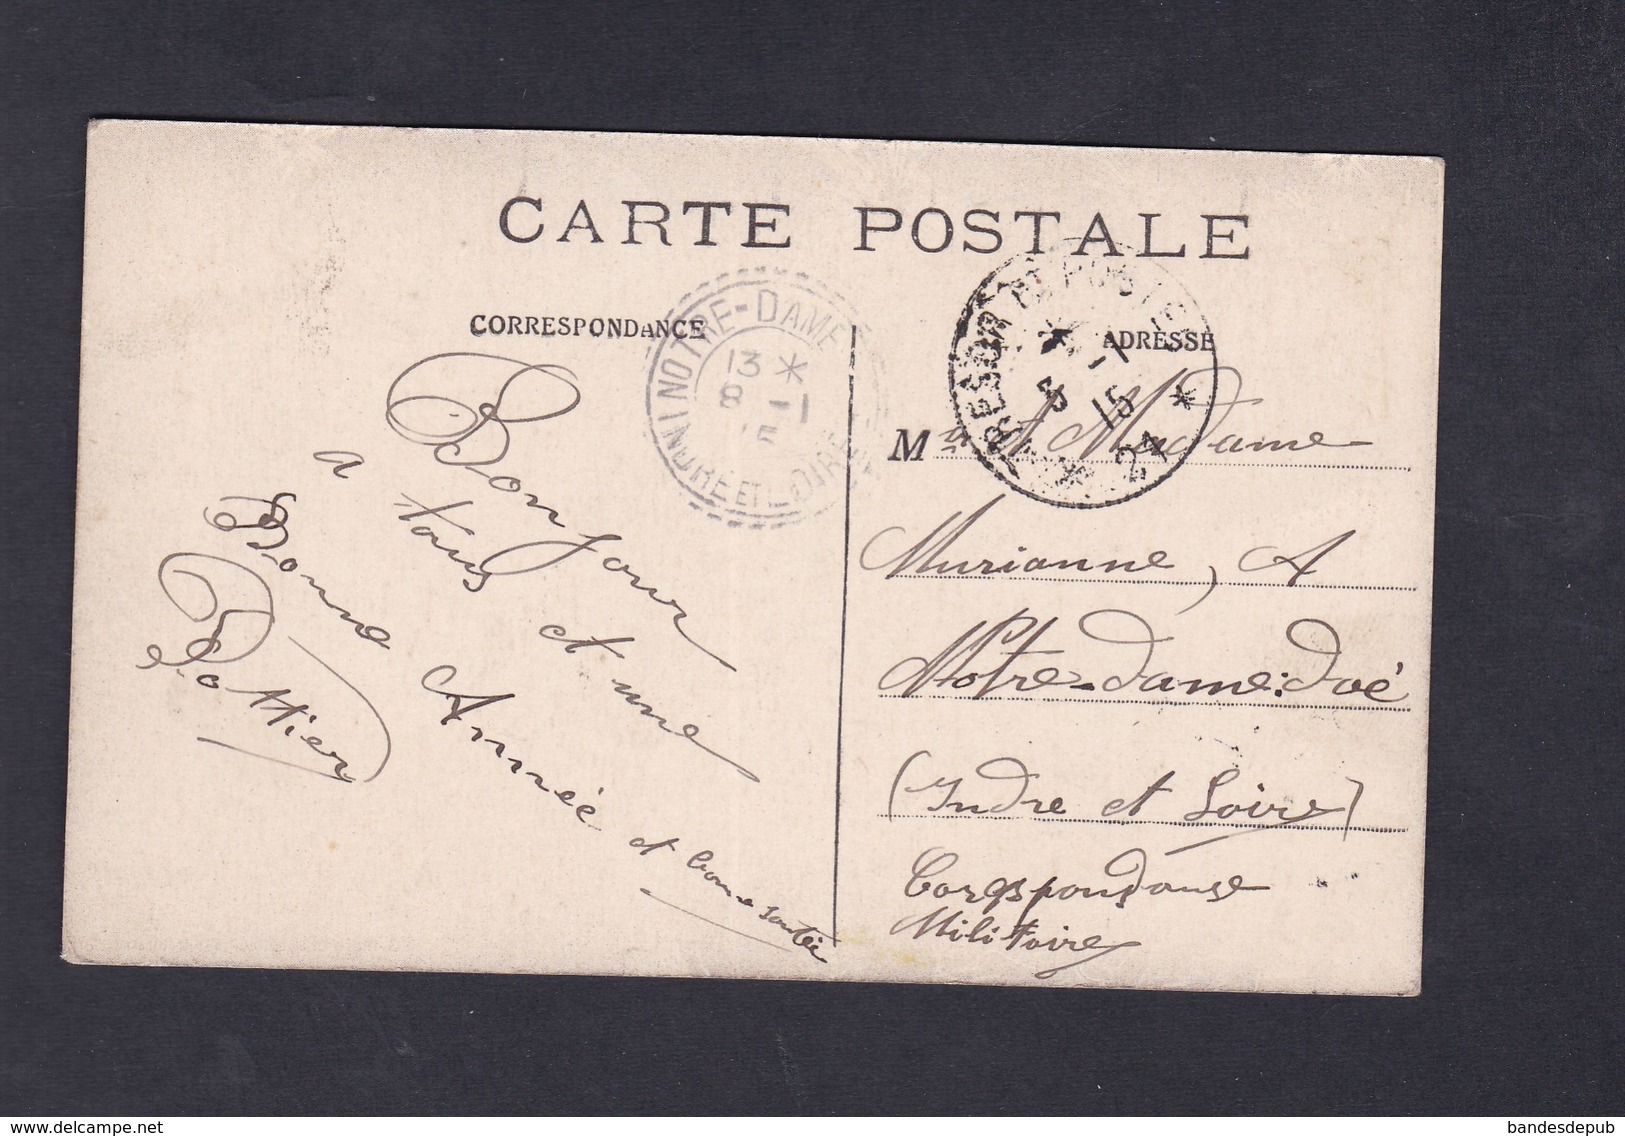 CARTE POSTALE
CORRESPONDANCE
ADRESSE
NOTRE-DAME
13 *
8 -1
15
INDRE ET LOIRE
TRESOR ET POSTES
* 24 *
5 -1
15
Bonjour
a tous et une
Bonne Année et bonne santée
Pottier
Mr et Madame
Murianne, A
Notre-Dame: d'oé
(Indre et Loire)
Corespondanse
Militaire
delcampe.net
bandesdepub